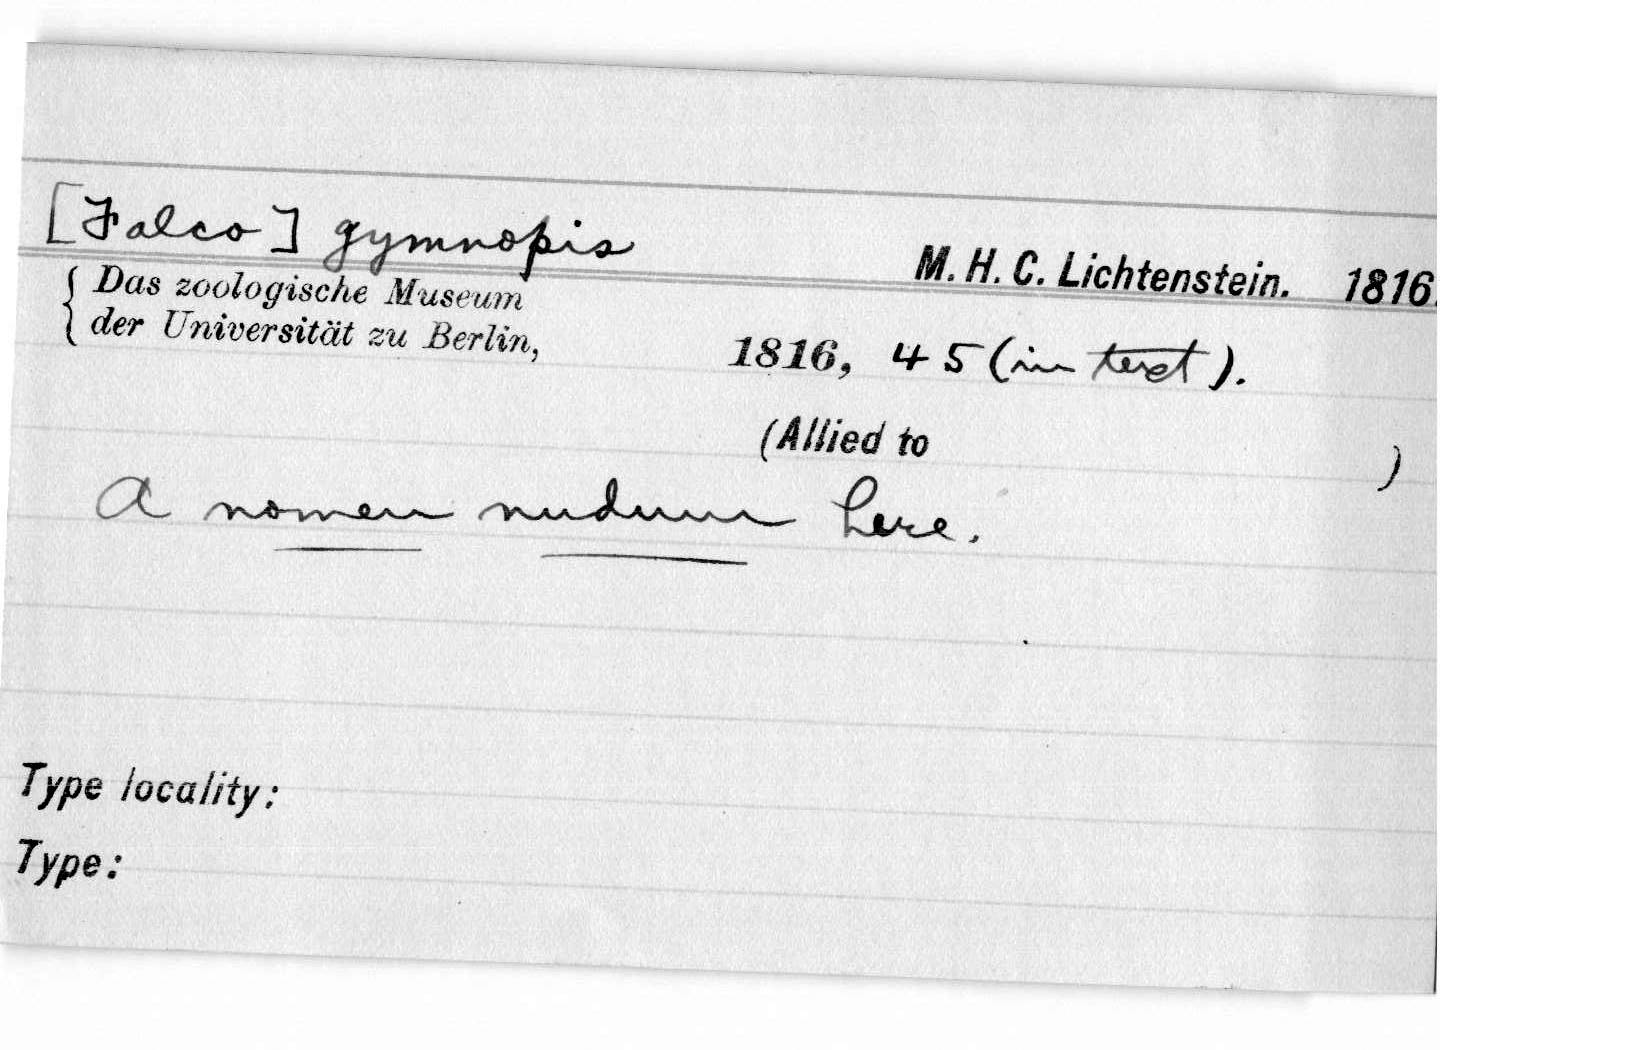 [Falco] gymnopis
M. H. C. Lichtenstein. 1816.
{ Das zoologische Museum
der Universität zu Berlin,
1816, 45 (in text).
(Allied to )
A nomen nudum here.
Type locality:
Type: